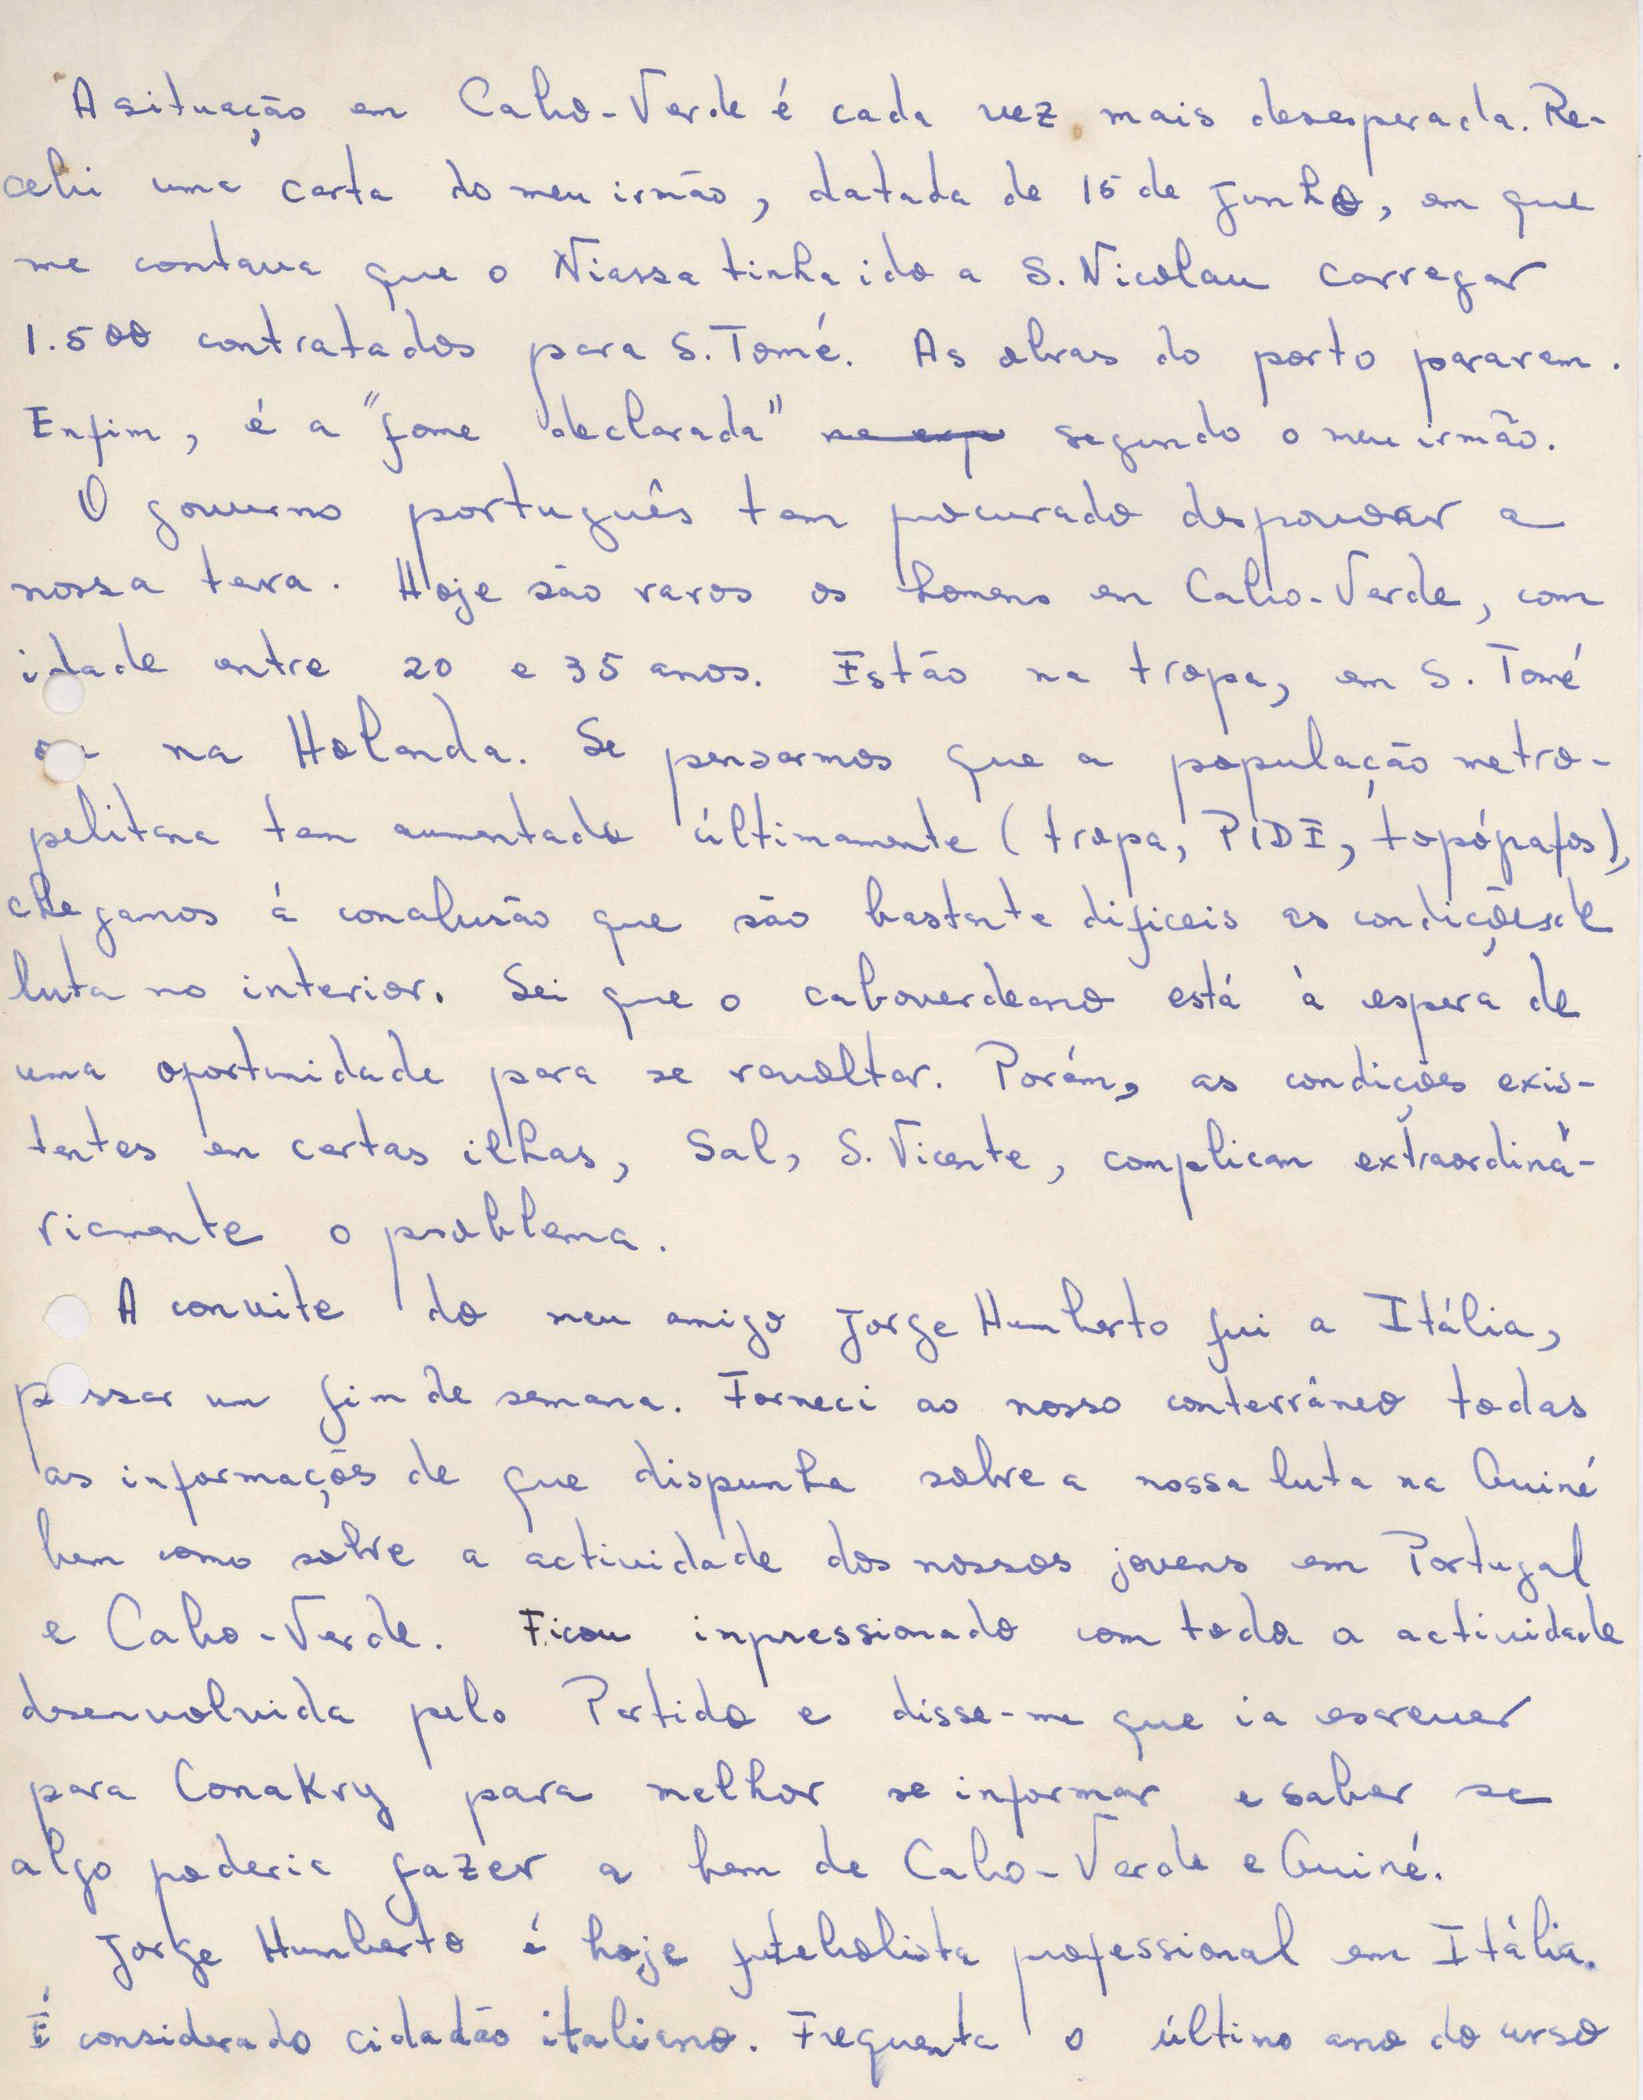 A situação em Cabo-Verde é cada vez mais desesperada. Re-
cebi uma carta do meu irmão, datada de 15 de Junho, em que
me contava que o Niassa tinha ido a S. Nicolau carregar
1.500 contratados para S. Tomé. As obras do porto pararam.
Enfim, é a "fome declarada" segundo o meu irmão.
O governo português tem procurado despovoar a
nossa terra. Hoje são raros os homens em Cabo-Verde, com
idade entre 20 e 35 anos. Estão na tropa, em S. Tomé
ou na Holanda. Se pensarmos que a população metro-
politana tem aumentado últimamente (tropa, PIDE, topógrafos),
chegamos á conclusão que são bastante dificeis as condições de
luta no interior. Sei que o caboverdeano está à espera de
uma oportunidade para se revoltar. Porém, as condições exis-
tentes em certas ilhas, Sal, S. Vicente, complicam extraordiná-
riamente o problema.
A convite do meu amigo Jorge Humberto fui a Itália,
passar um fim de semana. Forneci ao nosso conterrâneo todas
as informações de que dispunha sobre a nossa luta na Guiné
bem como sobre a actividade dos nossos jovens em Portugal
e Cabo-Verde. Ficou impressionado com toda a actividade
desenvolvida pelo Partido e disse-me que ia escrever
para Conakry para melhor se informar e saber se
algo poderia fazer a bem de Cabo-Verde e Guiné.
Jorge Humberto é hoje futebolista professional em Itália.
É considerado cidadão italiano. Frequenta o último ano do curso